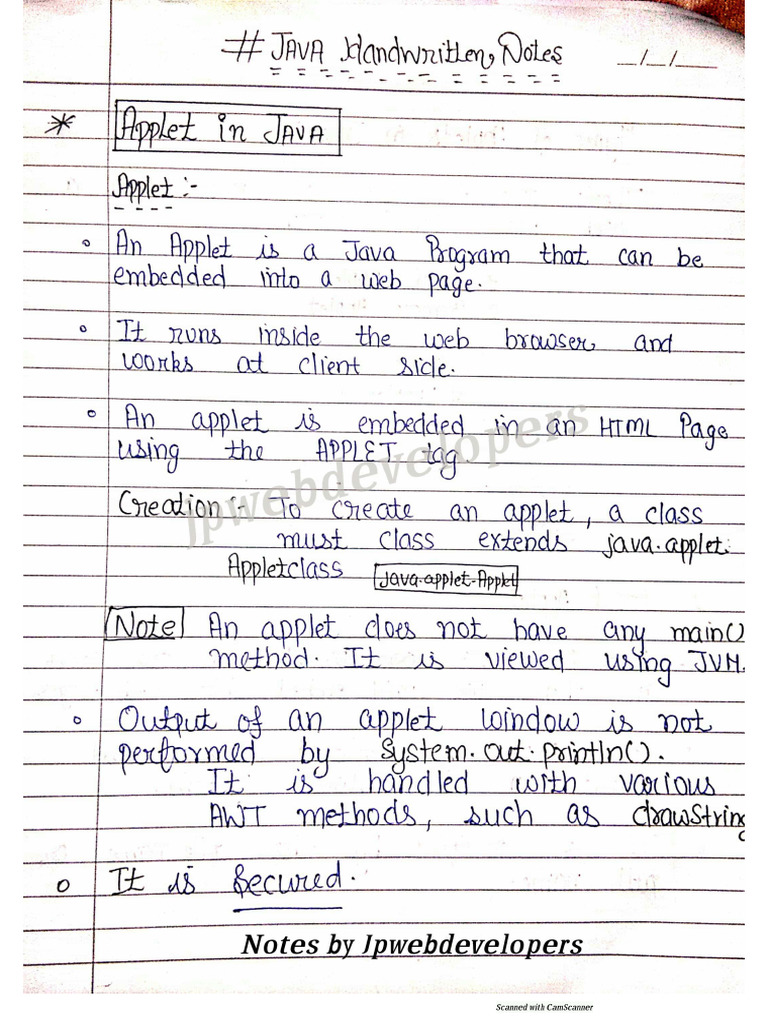 # JAVA Handwritten Notes __/__/__
* Applet in JAVA
Applet :-
An Applet is a Java Program that can be
embedded into a web page.
It runs inside the web browser and
works at client side.
An applet is embedded in an HTML Page
using the APPLET tag
jpwebdevelopers
Creation :- To create an applet, a class
must class extends java.applet.
Appletclass java.applet.Applet
Note An applet does not have any main()
method. It is viewed using JVM.
Output of an applet window is not
performed by System.out.println().
It is handled with various
AWT methods, such as drawString
It is Secured.
Notes by Jpwebdevelopers
Scanned with CamScanner